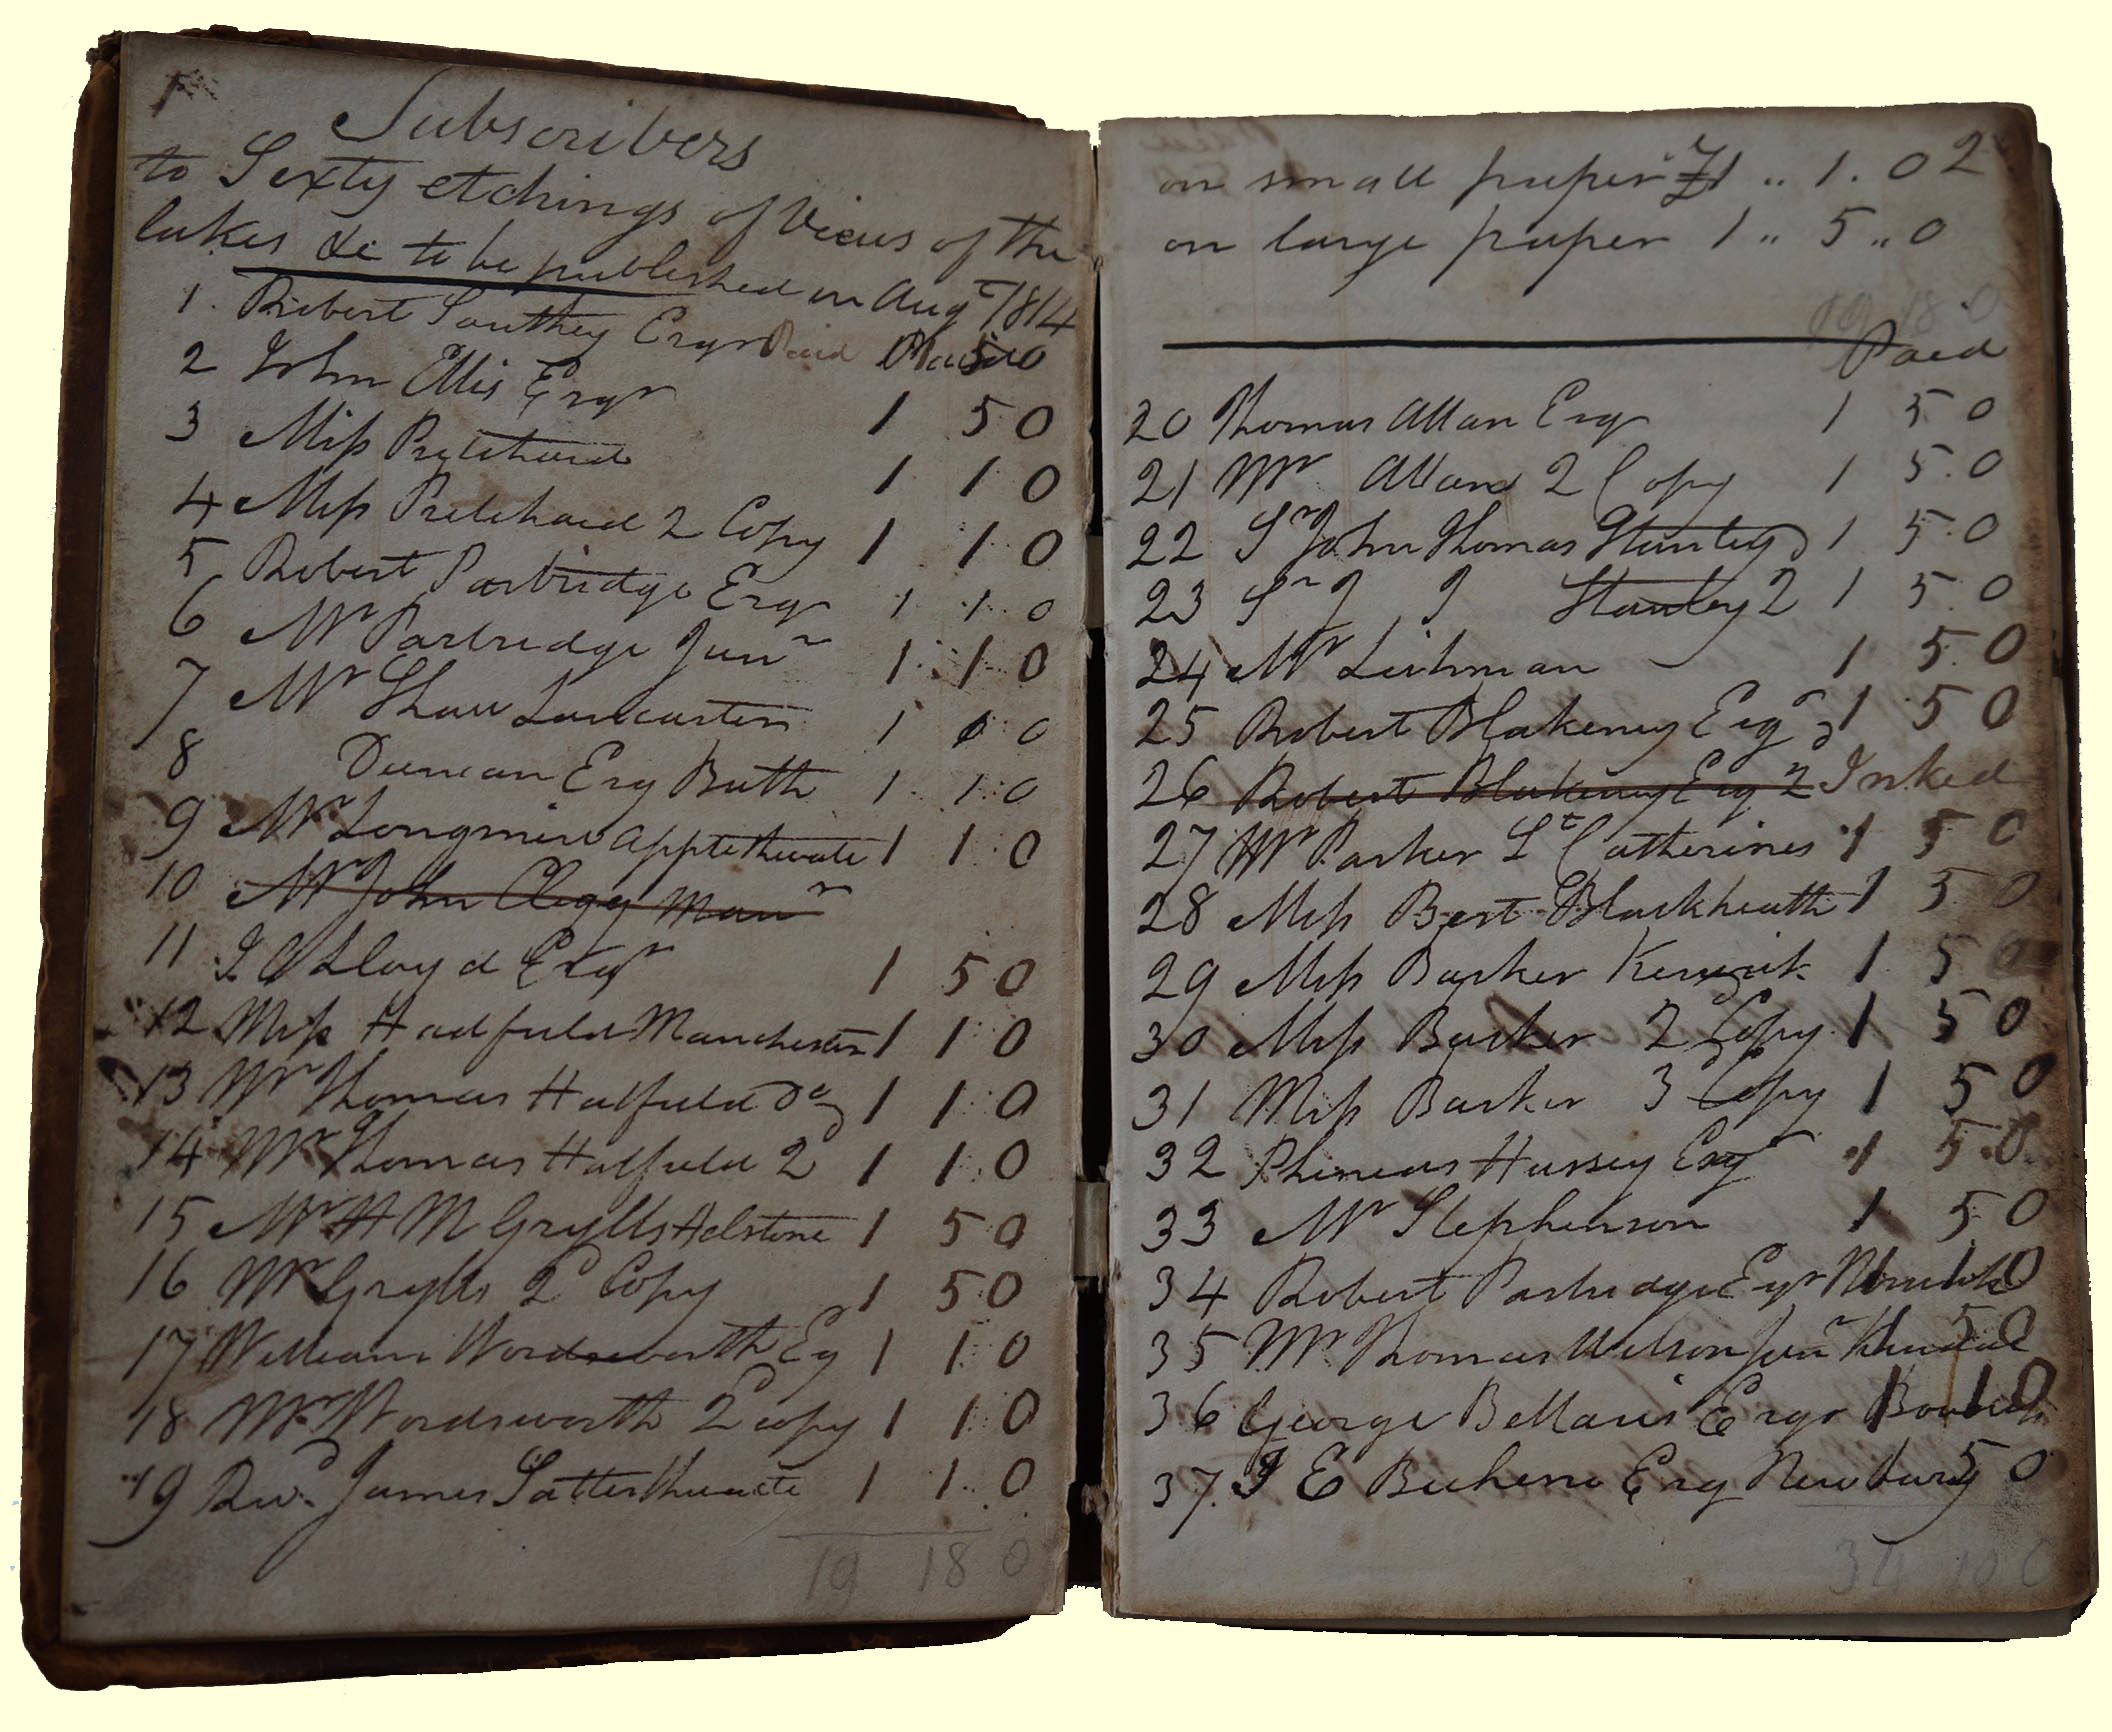 1
Subscribers
to Sixty etchings of Views of the
lakes &c to be published in Augt 1814
1. Robert Southey Esqr Paid Paid 5 0
2 John Ellis Esqr 1 5 0
3 Miss Pritchard 1 1 0
4 Miss Pritchard 2 Copy 1 1 0
5 Robert Partridge Esqr 1 1 0
6 Mr Partridge Junr 1 1 0
7 Mr Shaw Lancaster 1 1 0
8 Duncan Esq Bath 1 1 0
9 Mr Longmire Applethwaite 1 1 0
10 Mr John Clegg Manr
11 Lloyd Esqr 1 5 0
12 Miss Hadfield Manchester 1 1 0
13 Mr Thomas Hatfield Do 1 1 0
14 Mr Thomas Hatfield 2 1 1 0
15 Mr H M Grylls Helstone 1 5 0
16 Mr Grylls 2d Copy 1 5 0
17 William Wordsworth Esq 1 1 0
18 Mr Wordsworth 2 Copy 1 1 0
19 Revd James Satterthwaite 1 1 0
19 18 0
on small paper £1 .. 1 . 0 2
on large paper 1 .. 5 .. 0
19 18 0
Paid
20 Thomas Allan Esqr 1 5 0
21 Mr Allan 2 Copy 1 5 0
22 Sr John Thomas Stanley 1 5 0
23 Sr J T Stanley 2 1 5 0
24 Mr Lishman 1 5 0
25 Robert Blakeney Esqr 1 5 0
26 Robert Blakeney Esq 2 Inked
27 Mr Parker St Catherines 1 5 0
28 Miss Best Blackheath 1 5 0
29 Miss Barker Keswick 1 5 0
30 Miss Barker 2 Copy 1 5 0
31 Miss Barker 3 Copy 1 5 0
32 Phineas Hussey Esqr 1 5 0
33 Mr Stephenson 1 5 0
34 Robert Partridge Esqr Norwich 1 1 0
35 Mr Thomas Wilson Junr Kendal 5 0
36 George Bellasis Esqr 1 1 0
37. J E Bicheno Esq Newbury 5 0
34 10 0